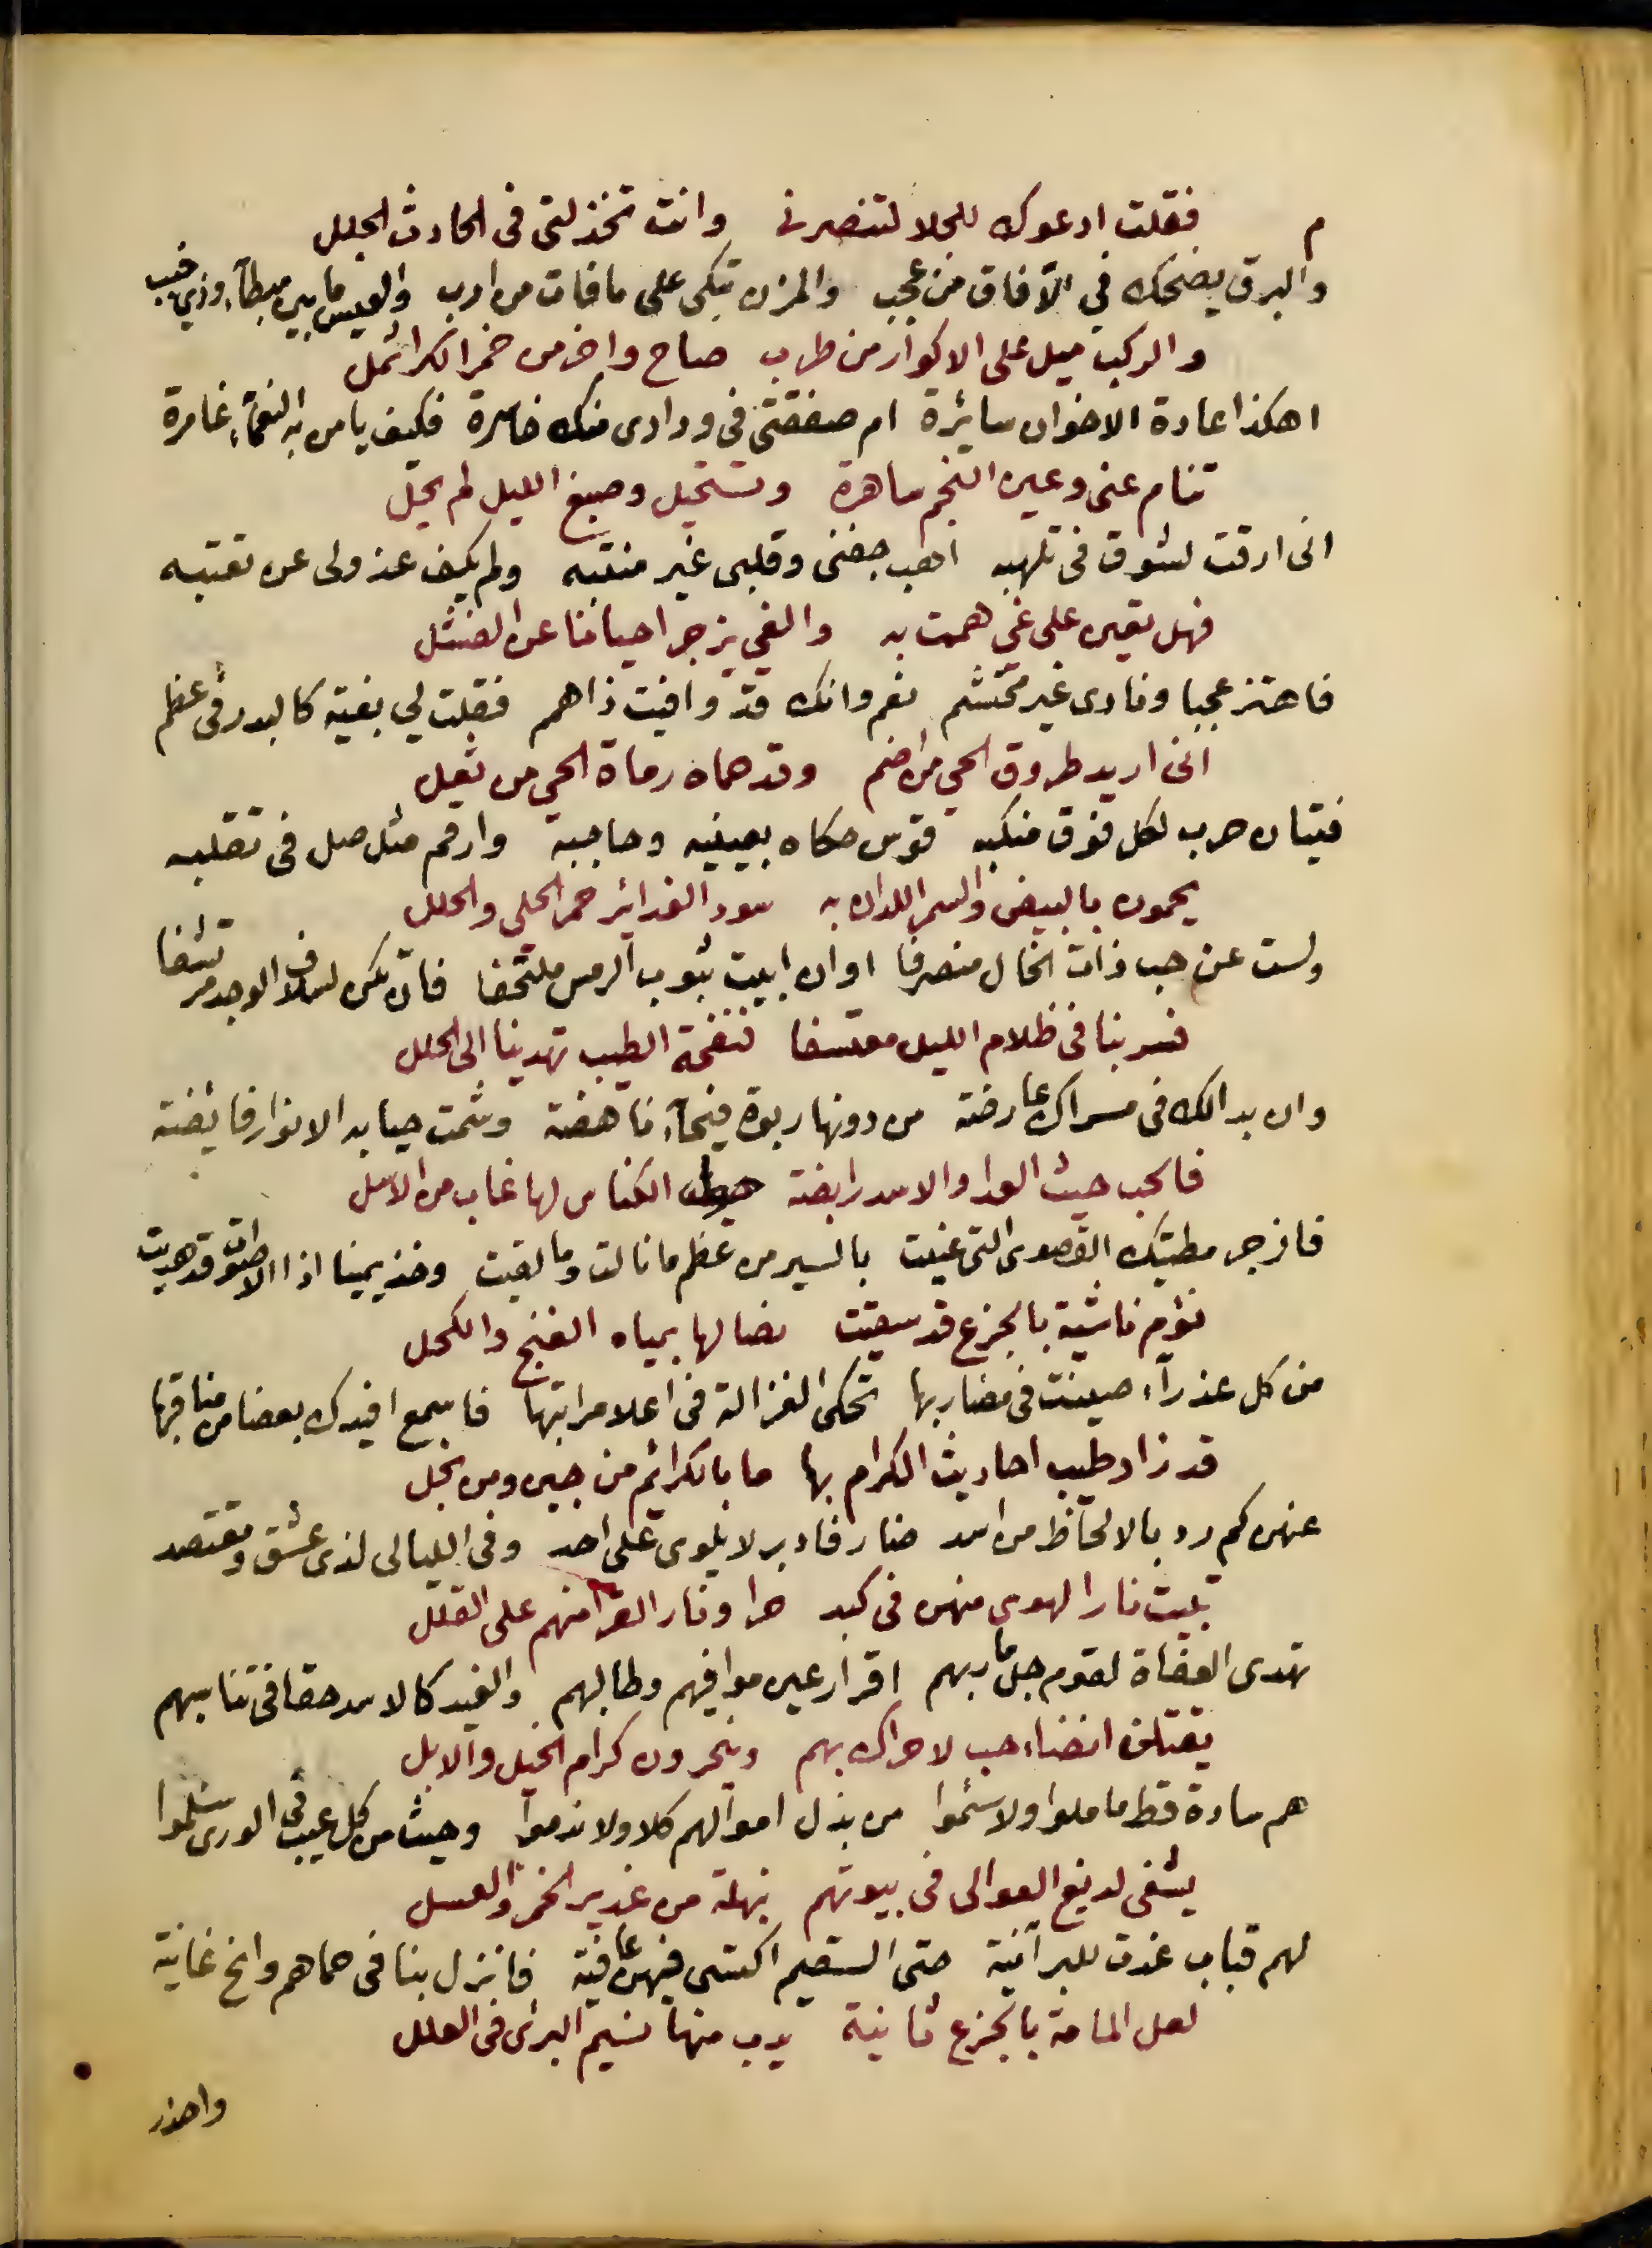 م فقلت ادعوك للجلا لتنصرنى وانت تخذلنى فى الحادث الجلل
والبرق يضحك في الآفاق من عجب والمزن تبكى على ما فات من ارب والعيس ما بين مبطآء وذي خبب
والركب ميل على الاكوار من طرب صاح واخر من خمر الكرا ثمل
اهكذا عادة الاخوان سائرة ام صفقتى فى ودادى منك خاسرة فكيف يا من به النعمآء غامرة
تنام عنى وعين النجم ساهرة وتستحيل وصبغ الليل لم يحل
انى ارقت لشوق فى تلهبه اهب جفنى وقلبى غير منتبه ولم يكف عذولى عن تعتبه
فهل تعين على غي هممت به والغي يزجر احيانا عن الفشل
فاهتز عجبا ونادى غير محتشم نعم وانك قد وافيت ذا همم فقلت لي بغية كالبدر فى عظم
انى اريد طروق الحي من اضم وقد حماه رماة الحي من ثعل
فتيان حرب لكل فوق منكبه قوس حكاه بعينيه وحاجبه وارقم مثل صل فى تقلبه
يحمون بالبيض والسمر اللدان به سود الغدائر حمر الحلى والحلل
ولست عن حب ذات الخال منصرفا او ان ابيت بثوب الرمس ملتحفا فان تكن لسلاف الوجد مرتشفا
فسر بنا فى ظلام الليل معتسفا فنفحة الطيب تهدينا الى الحلل
وان بدا لك فى مسراك عارضة من دونها ربوة فيحآء ناهضة وشمت حيا به الانوار فائضة
فالحب حيث العدا والاسد رابضة حول الكناس لها غاب من الاسل
فازجر مطيتك القصوى التى عنيت بالسير من عظم ما نالت وما لقيت وخذ يمينا اذا الاصوات قد هديت
نؤم ناشئة بالجزع قد سقيت نصالها بمياه الغنج والكحل
من كل عذرآء صينت فى مضاربها تحكى الغزالة فى اعلا مراتبها فاسمع افيدك بعضا من مناقبها
قد زاد طيب احاديث الكرام بها ما بالكرائم من جبن ومن بخل
عنهن كم رد بالالحاظ من اسد ضار فادبر لا يلوى على احد وفى الليالى لذى عشق ومقتصد
تبيت نار الهوى منهن فى كبد حرا ونار القرا منهم على القلل
تهدى العفاة لقوم جل ماربهم اقرار عين موافيهم وطالبهم والغيد كالاسد حقا فى تناسبهم
يقتلن انضاء حب لا حراك بهم وينحرون كرام الخيل والابل
هم سادة قط ما ملوا ولا سئموا من بذل اموالهم كلا ولا ندموا وحيث من كل عيب فى الورى سلموا
يشفى لديغ العوالى فى بيوتهم بنهلة من غدير الخمر والعسل
لهم قباب غدت للبر آنية حتى السقيم اكتسى فيهن عافية فانزل بنا فى حماهم وانخ غانية
لعل المامة بالجزع ثانية يدب منها نسيم البرئ فى العلل
واحذر